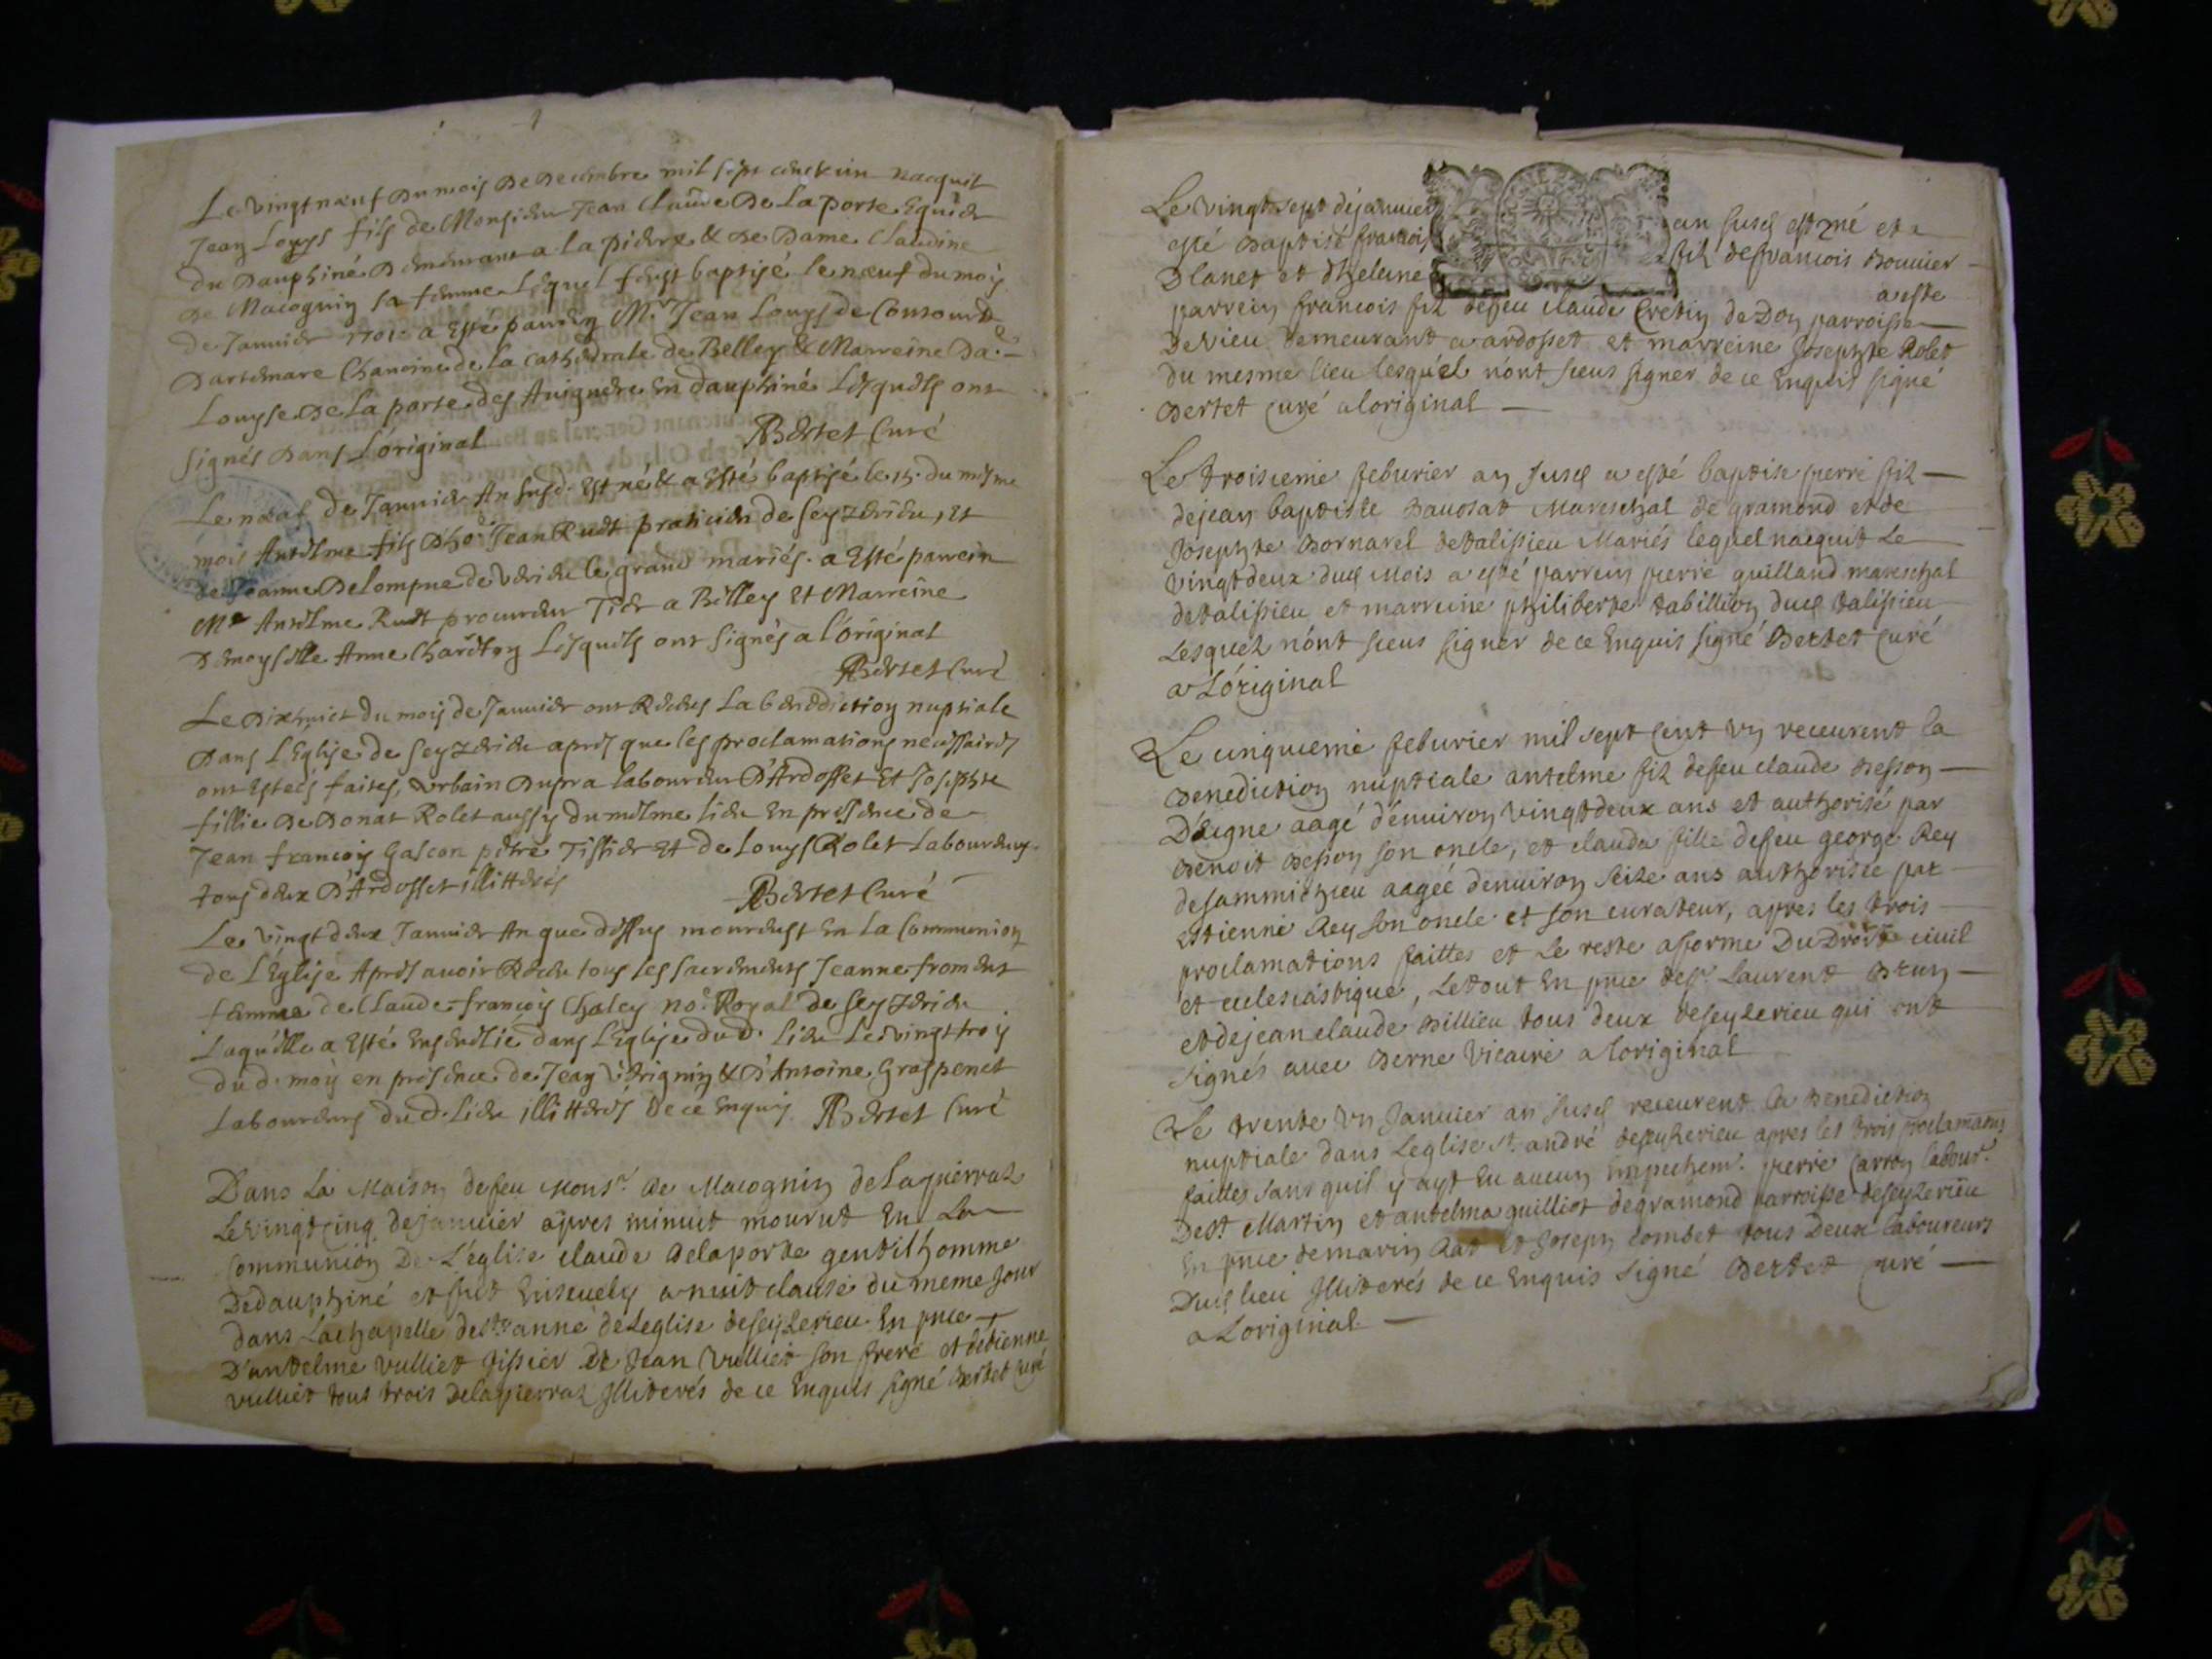 Le vingt nœuf du mois de decembre mil sept cent et un nacquit
Jean Louys fils de Monsieur Jean Claude De La porte Equier
du Dauphiné demeurant a la pierre & de Dame Claudine
de Macognin sa femme lequel feust baptisé le nœuf du moy
de Janvier 1701 a Esté parrein Mr. Jean Louys de
Dartemare Chanoine de la cathédrale de Belley & Marreine Da.e
Louyse De la porte des Avignere en dauphiné Lesquels ont
signés dans L'original Bertet Curé
Le nœuf de Janvier An susd. Est né & a Esté baptisé le 15. du mesme
mois Antelme fils d'ho. Jean Ruet praticien de Seyzerieu, et
de Jeanne Delompne de Verieu le grand mariés. a Esté parrein
Mr Antelme Ruet procureur a Belley Et Marreine
Demoyselle Anne Lesquels ont Signés a l'original
Bertet Curé
Le Dixhuict du mois de Janvier ont Receus La benediction nuptiale
Dans L'Eglise de Seyzerieu apres que les proclamations necessaires
ont Esteés faites, Urbain Dupra laboureur D'Ardosset Et Josephte
fillie de Donat Rolet aussy du mesme lieu En presence de
Jean francois Gascon Tissier Et de Louys Rolet Laboureurs
tous deux D'Ardosset illitterés Bertet Curé
Le vingt deux Janvier An que dessus moureust En La Communion
de L'Eglise Apres avoir Receu tous les sacrements Jeanne froment
femme de Claude francois Chaley no.e Royal de Seyzerieu
Laquelle a Esté Ensevelie dans L'Eglise dud. lieu Le vingt troy
du d. moy en presence de Jean Verignin & d'Antoine Graspenet
Laboureurs dud. lieu illitterés De ce Enquis Bertet Curé
Dans La Maison defeu Monsr. de Macognin de Lapierraz
Le vingt cinq dejanvier apres minuit mourut En La
Communion De L'église claude delaporte gentilhomme
Dedauphiné et fut Ensevely a nuit clause du meme Jour
dans La chapelle deste anne deLeglise deseyzerieu En pnce
D'antelme vulliet tissier de Jean Vulliet son frere et detienne
vulliet tous trois Delapierraz Illiterés de ce Enquis signé Bertet curé
Le vingt sept dejanvier an susd est né et a
esté Baptisé francois fils defrancois Bouvier
Blanet et d'helene a este
parrein francois fils defeu claude Cretin de Don parroisse
De Vieu demeurant a ardosset et marreine Josephte Rolet
du mesme lieu lesquel n'ont sceus signer de ce Enquis signé
Bertet curé a loriginal
Le troisieme feburier an susd a esté baptise pierre fils
dejean baptiste Bavosat Mareschal de gramond et de
Josephte Bornarel detalissieu Mariés lequel nacquit Le
vingt deux dud Mois a esté parrein pierre guilland mareschal
detalissieu et marreine philiberte tabillion dud talissieu
Lesquels n'ont sceus signer de ce Enquis signé Bertet curé
a L'original
Le cinquieme feburier mil sept cent un receurent la
Benediction nuptiale antelme fils defeu claude Besson
D'Eigne aagé d'environ vingt deux ans et authorisé par
Benoit Besson son oncle, et clauda fille defeu george Rey
desammichieu aageé denviron seize ans authorisée par
Estienne Rey son oncle et son curateur, apres les trois
proclamations faittes et Le reste asforme Du Droit civil
et eclesiastique, Letout En pnce desr Laurent Brun
et dejean claude Billieu tous deux deseyzerieu qui ont
signés avec Berne vicaire a loriginal
Le trente un Janvier an susd receurent la Benediction
nuptiale dans Leglise st. andré deseyzerieu apres les trois proclamaons
faittes sans quil y ayt Eu aucun Empechemt. pierre Carron labour.
Dest Martin et antelma guilliot degramond parroisse deseyzerieu
En pnce demarin Rat Et Joseph Combet tous Deux laboureurs
Dud lieu Illiterés de ce Enquis signé Bertet curé
a Loriginal